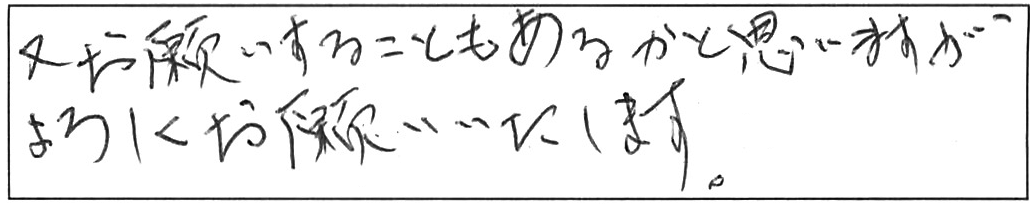 又お願いすることもあるかと思いますが
よろしくお願いいたします。